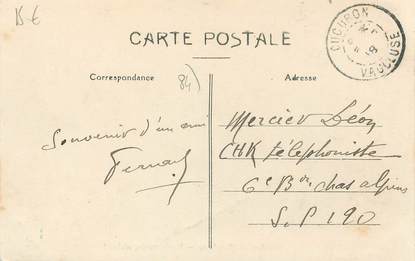 15 €
CUCURON
VAUCLUSE
CARTE POSTALE
Correspondance
84)
Adresse
Souvenir d'un ami
Fernand
Mercier Léon
téléphoniste
6e Bon chas alpins
S.P 190